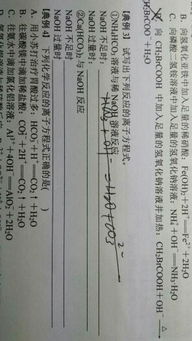 向氢氧化亚铁中加入足量的稀硝酸：Fe(OH)₂+2H⁺═Fe²⁺+2H₂O
C. 向磷酸二氢铵溶液中加入足量的氢氧化钠溶液：NH₄⁺+OH⁻═NH₃·H₂O
向 CH₂BrCOOH 中加入足量的氢氧化钠溶液并加热：CH₂BrCOOH+OH⁻
△
BrCOO⁻+H₂O
[典例3] 试写出下列反应的离子方程式。
①NH₄HCO₃溶液与稀 NaOH 溶液反应
NaOH 不足时
NaOH 过量时
②Ca(HCO₃)₂与 NaOH 反应
NaOH 不足时
NaOH 过量时
[典例4] 下列化学反应的离子方程式正确的是( )
A. 用小苏打治疗胃酸过多：HCO₃⁻+H⁺═CO₂↑+H₂O
B. 往碳酸镁中滴加稀盐酸：CO₃²⁻+2H⁺═CO₂↑+H₂O